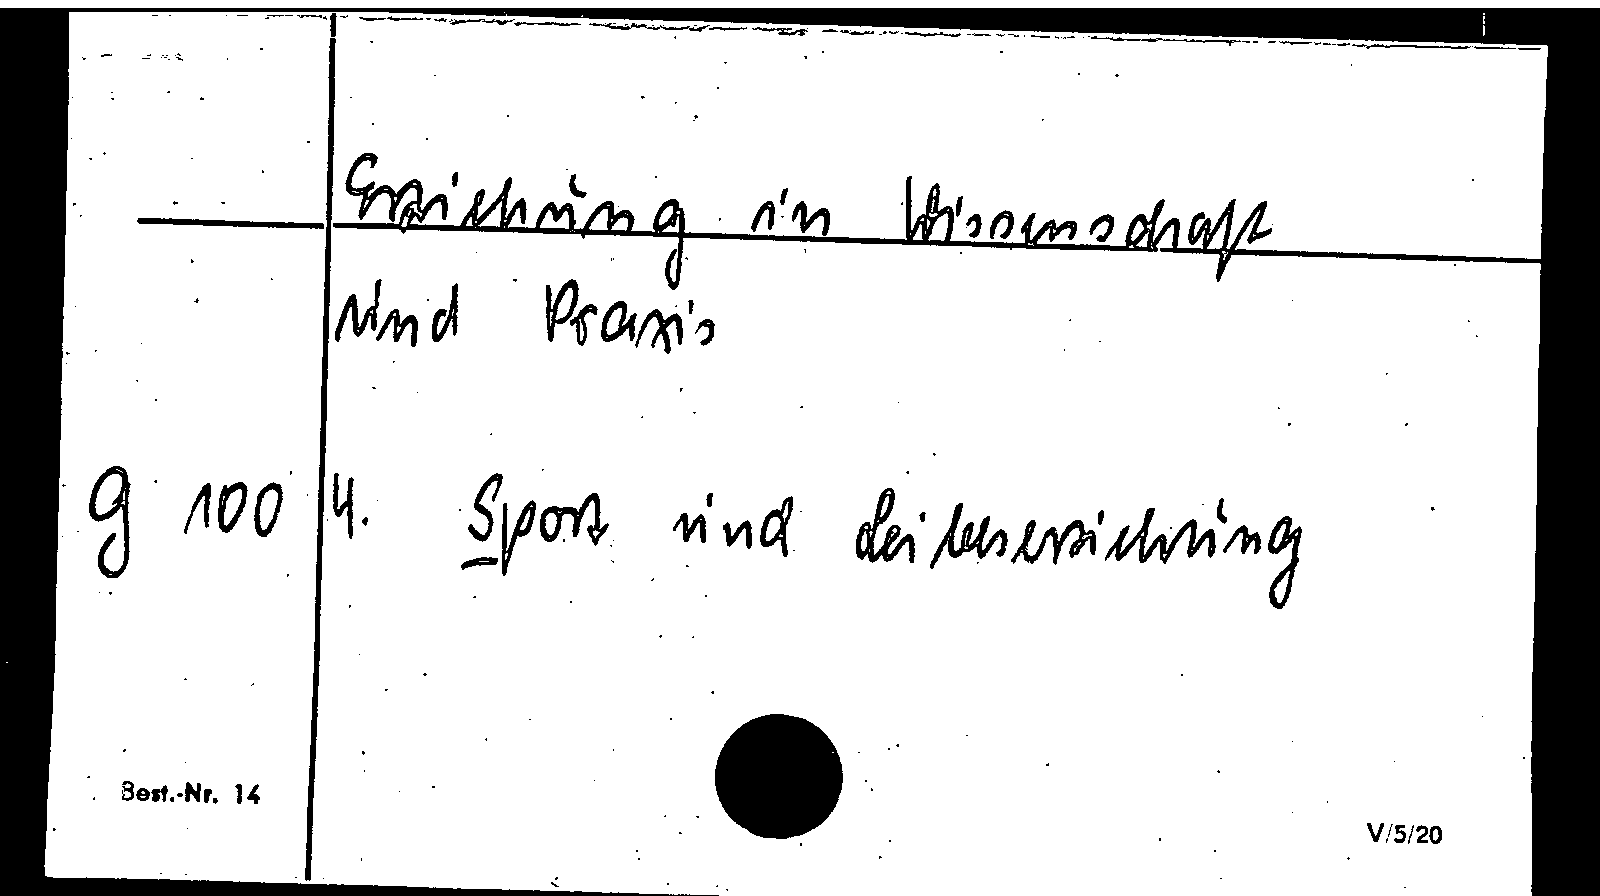 Erziehung in Wissenschaft
und Praxis
g 100 4. Sport und Leibeserziehung
Best.-Nr. 14
V/5/20